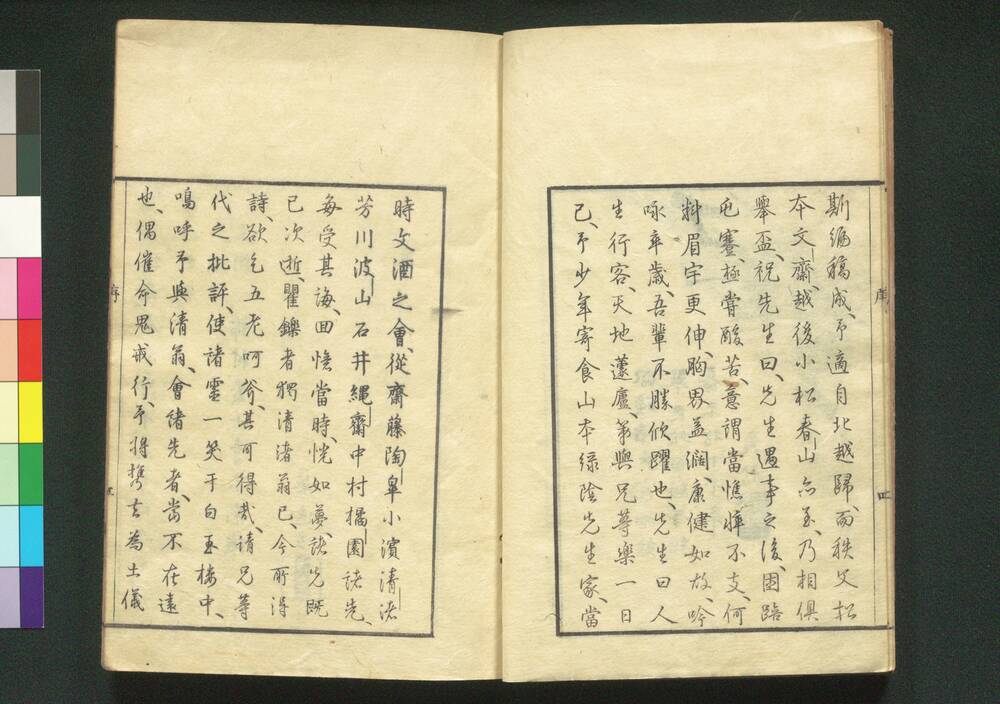 斯編稿成、予適自北越歸、而秩父松
本文齋、越後小松春山亦至、乃相俱
舉盃、祝先生曰、先生遇事之後、困踣
屯蹇、極嘗酸苦、意謂當憔悴不支、何
料眉宇更伸、胸界益濶、康健如故、吟
咏卒歲、吾輩不勝欣躍也、先生曰人
生行客、天地蘧廬、第與兄等樂一日
已、予少年寄食山本綠陰先生家、當
時文酒之會、從齋藤陶皐小濱清渚
芳川波山石井繩齋中村橘園諸先、
每受其誨、回憶當時、恍如夢、諸先既
已次逝、瞿鑠者獨清渚翁已、今所得
詩、欲乞五老呵斧、其可得哉、請兄等
代之批評、使諸靈一笑于白玉樓中、
嗚呼予與清翁、會諸先者、當不在遠
也、偶催命鬼戒行、予將携去為土儀
序
四
序
五